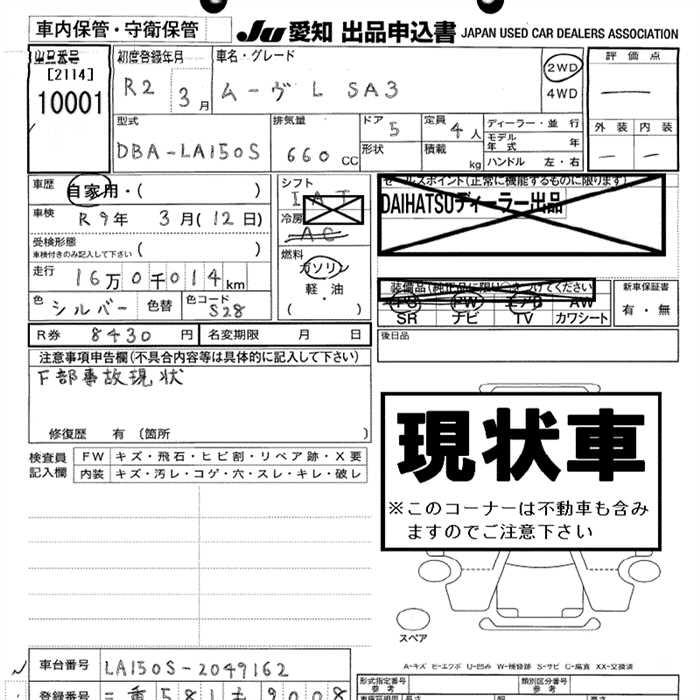 車内保管・守衛保管
JU 愛知 出品申込書 JAPAN USED CAR DEALERS ASSOCIATION
出品番号
[2114]
10001
初度登録年月
R2 3月
車名・グレード
ムーヴ L SA3
2WD
4WD
評価点
—
外装 内装
— —
型式
DBA-LA150S
排気量
660 CC
ドア 5
形状
定員 4人
積載 kg
ディーラー・並行
モデル年式 年
ハンドル 左・右
車歴 自家用・( )
車検 R9年 3月(12日)
受検形態
車検付きのみ記入して下さい ( )
走行 16万0千014km
色 シルバー 色替 色コード S28
シフト
IAT
冷房
AC
燃料
ガソリン
軽・油
( )
セールスポイント(正常に機能するものに限ります)
DAIHATSUディーラー出品
装備品(純正品に限り○をつけてください)
PS PW エアB AW
SR ナビ TV カワシート
新車保証書
有・無
R券 8430円 名変期限 月 日
後日品
注意事項申告欄(不具合内容等は具体的に記入して下さい)
下部事故現状
修復歴 有 〔箇所 〕
検査員記入欄
FW キズ・飛石・ヒビ割・リペア跡・X要
内装 キズ・汚レ・コゲ・穴・スレ・キレ・破レ
現状車
※このコーナーは不動車も含み
ますのでご注意下さい
スペア
A-キズ E-エクボ U-凹み W-補修跡 S-サビ C-腐食 XX-交換済
車台番号 LA150S-2049162
登録番号 三重581も9008
形式指定番号
参考
類別区分番号
参考